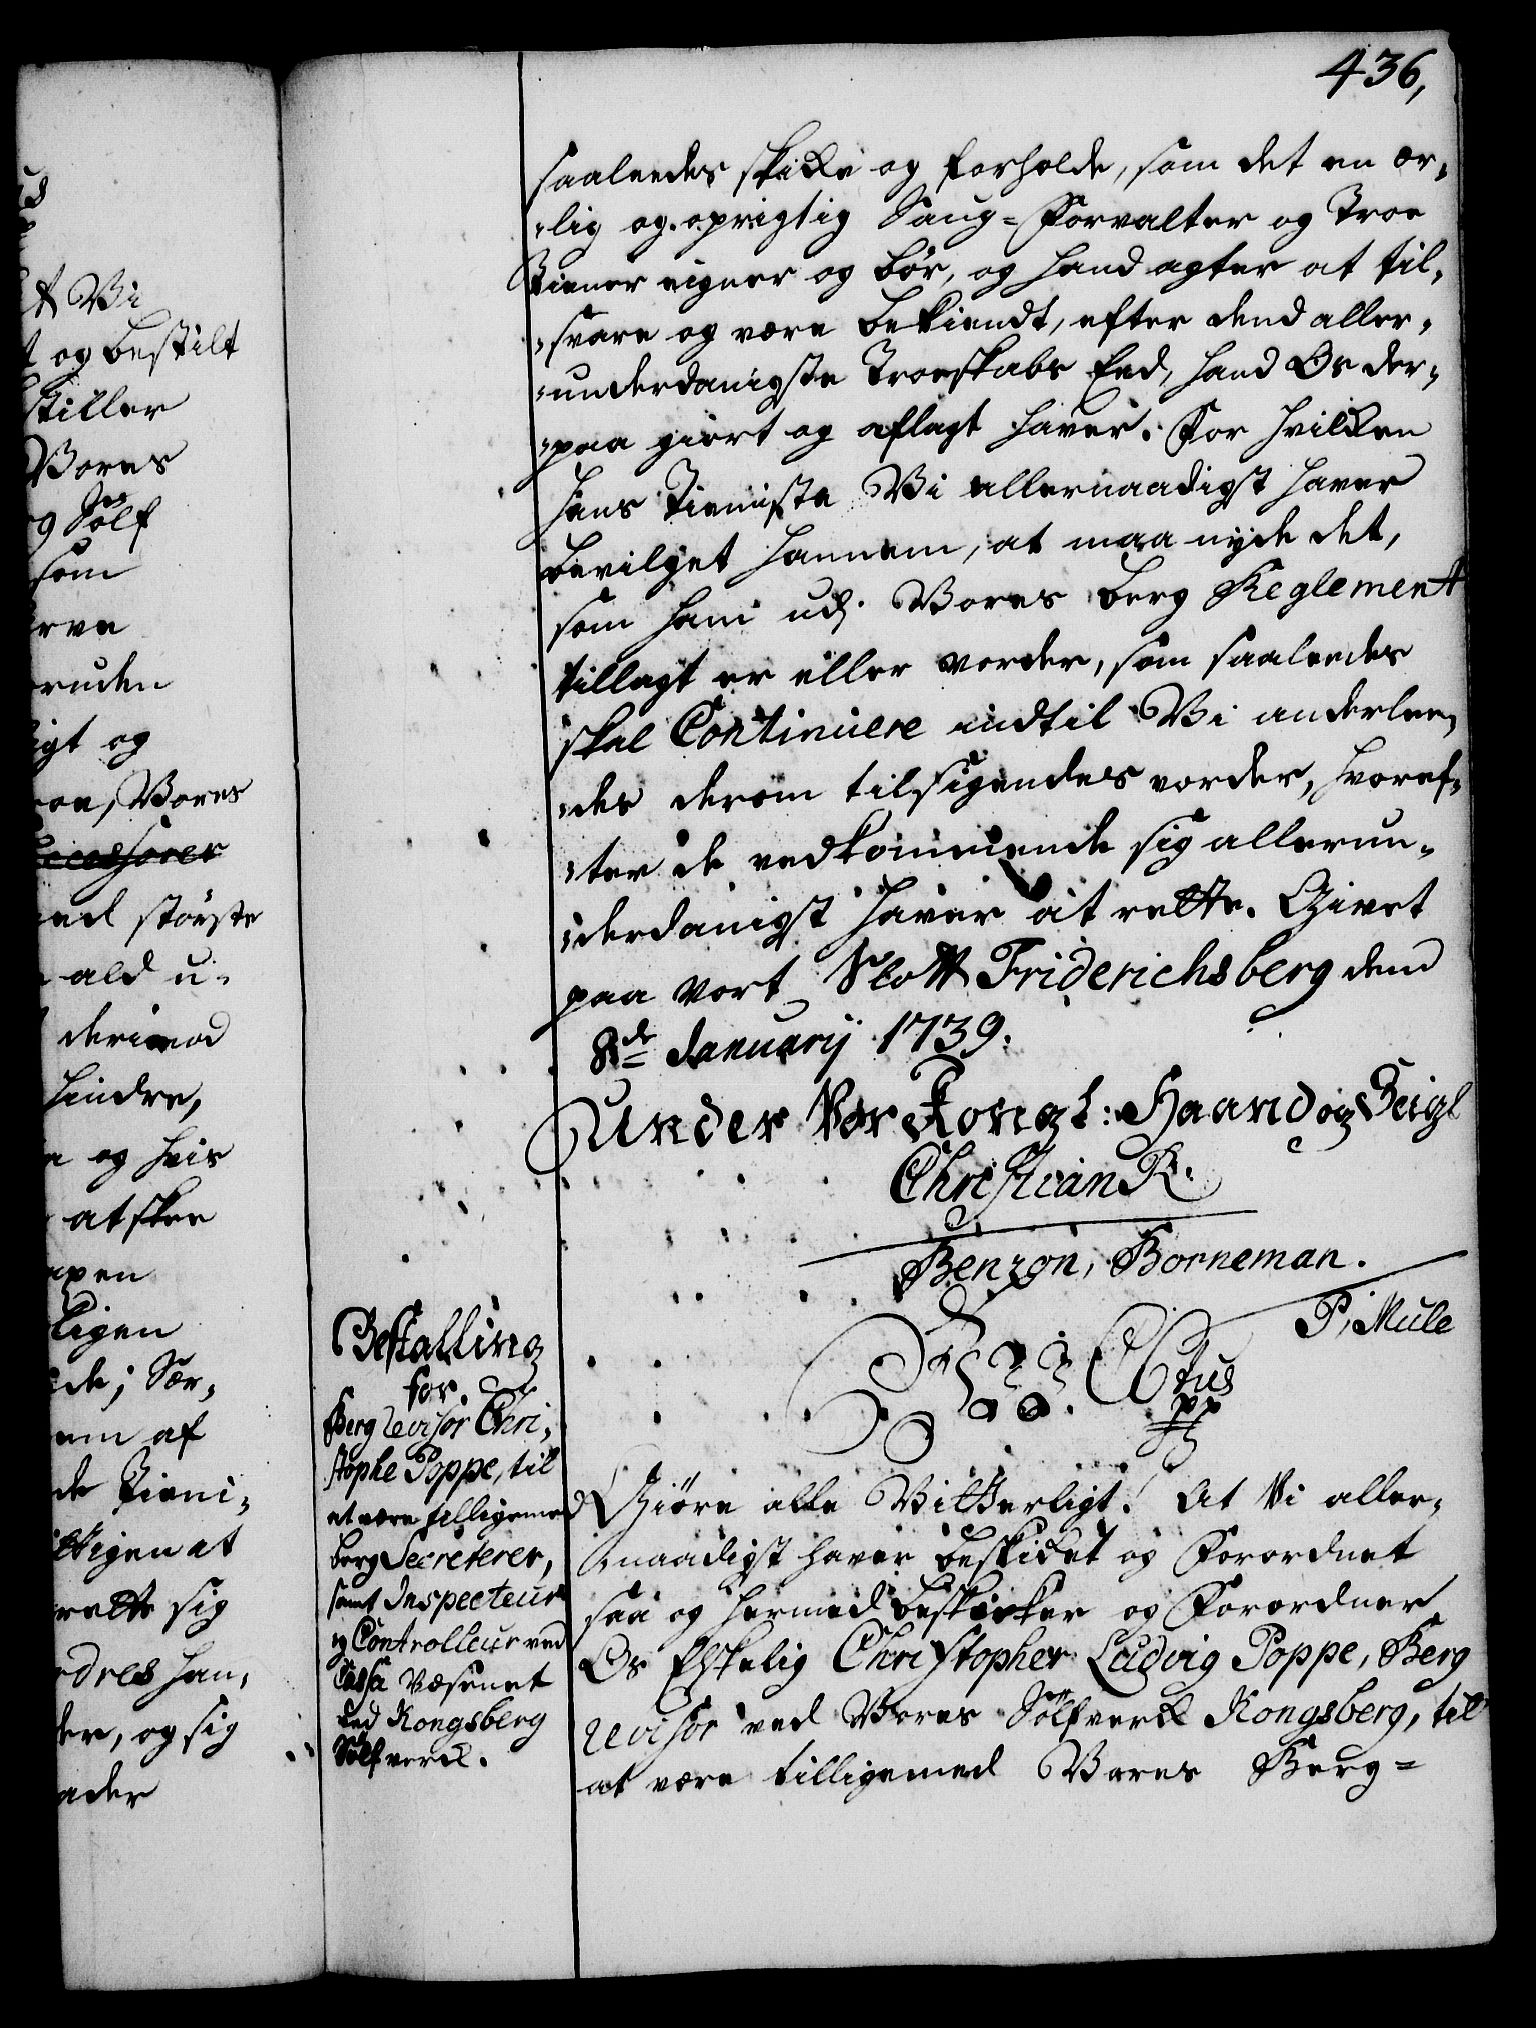 436,
saaleedes skikke og forholde, som det en ær-
-lig og oprigtig Saug-Forvalter og Troe
Tiener eigner og bør, og hand agter at til-
-svare og være bekiendt, efter dend aller-
-underdanigste Troeskabs Eed, hand Os der-
-paa giort og aflagt haver. For hvilken
hans Tieniste Vi allernaadigst haver
bevilget hannem, at maa nyde det,
som ham udj Vores berg Reglement
tillagt er eller vorder, som saaleedes
skal Continuere indtil Vi anderlee-
-des derom tilsigendes vorder, hvoref-
-ter de vedkommende sig allerun-
-derdanigst haver at rette. Givet
paa vort Slott Friderichsberg dend
8de January 1739.
Under Vor Kongl: Haand og Seigl
Christian R.
Benzon, Borneman.
P, Mule
Bestalling
for
Berg revisor Chri-
stophe Poppe, til
at være tilligemed
berg Secreterer,
samt Inspecteur
og Controlleur ved
Cassa Væsenet
ved Kongsberg
Sølfverk.
Giøre alle Vitterligt! At Vi aller-
-naadigst haver beskiket og Forordnet
saa og hermed beskikker og Forordner
Os Elskelig Christopher Ludvig Poppe, Berg
revisor ved Vores Sølfverk Kongsberg, til
at være tilligemed Vores Berg=
t Vi
og bestilt
stiller
Vores
Sølf
som
ruden
igt og
Vores
største
ald u-
derimod
hindre,
og hvis
at skee
ligen
de; Sær-
em af
de Tieni-
at
rette sig
han-
der, og sig